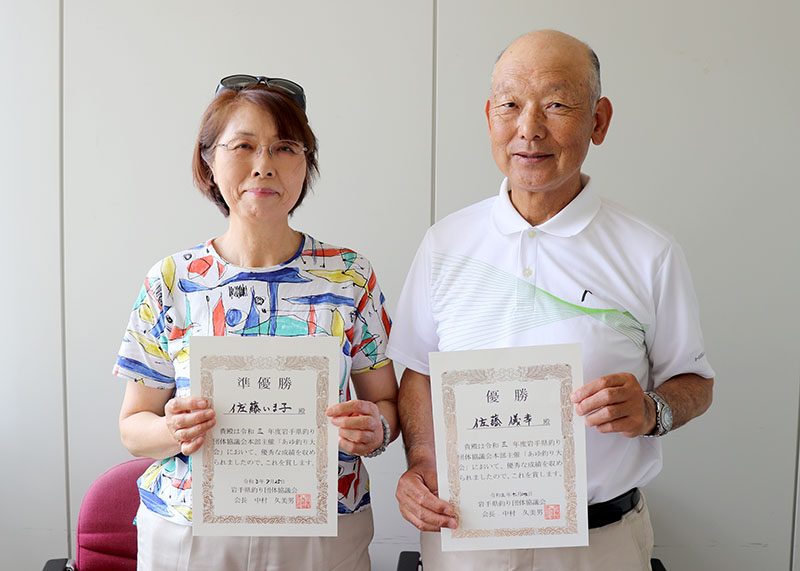 準優勝
佐藤いま子 殿
貴殿は令和三年度岩手県釣り
団体協議会本部主催「あゆ釣り大
会」において、優秀な成績を収め
られましたので、これを賞します。
岩手県釣り団体協議会
会長 中村 久美男
優勝
佐藤 殿
貴殿は令和三年度岩手県釣り
団体協議会本部主催「あゆ釣り大
会」において、優秀な成績を収め
られましたので、これを賞します。
岩手県釣り団体協議会
会長 中村 久美男